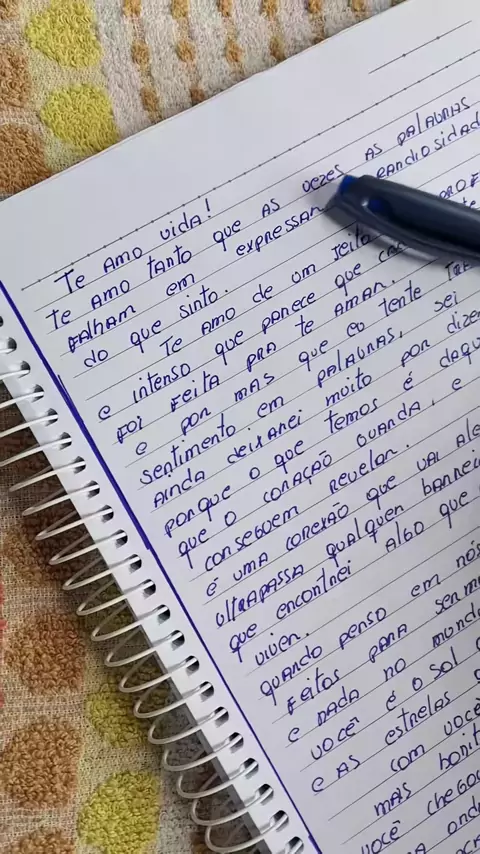 Te Amo vida!
Te Amo tanto que as vezes as palavras
falham em expressar
do que sinto.
Te Amo de um jeito
e intenso que parece que
foi feita pra te amar.
e por mais que eu tente
sentimento em palavras, sei
Ainda deixarei muito por dizer
porque o que temos é
que o coração guarda, e
conseguem revelar.
é uma conexão que vai
ultrapassa qualquer
que encontrei algo que
viver.
quando penso em nós
feitos para
e nada no mundo
você é o sol
e as estrelas
com você
mais
você chegou